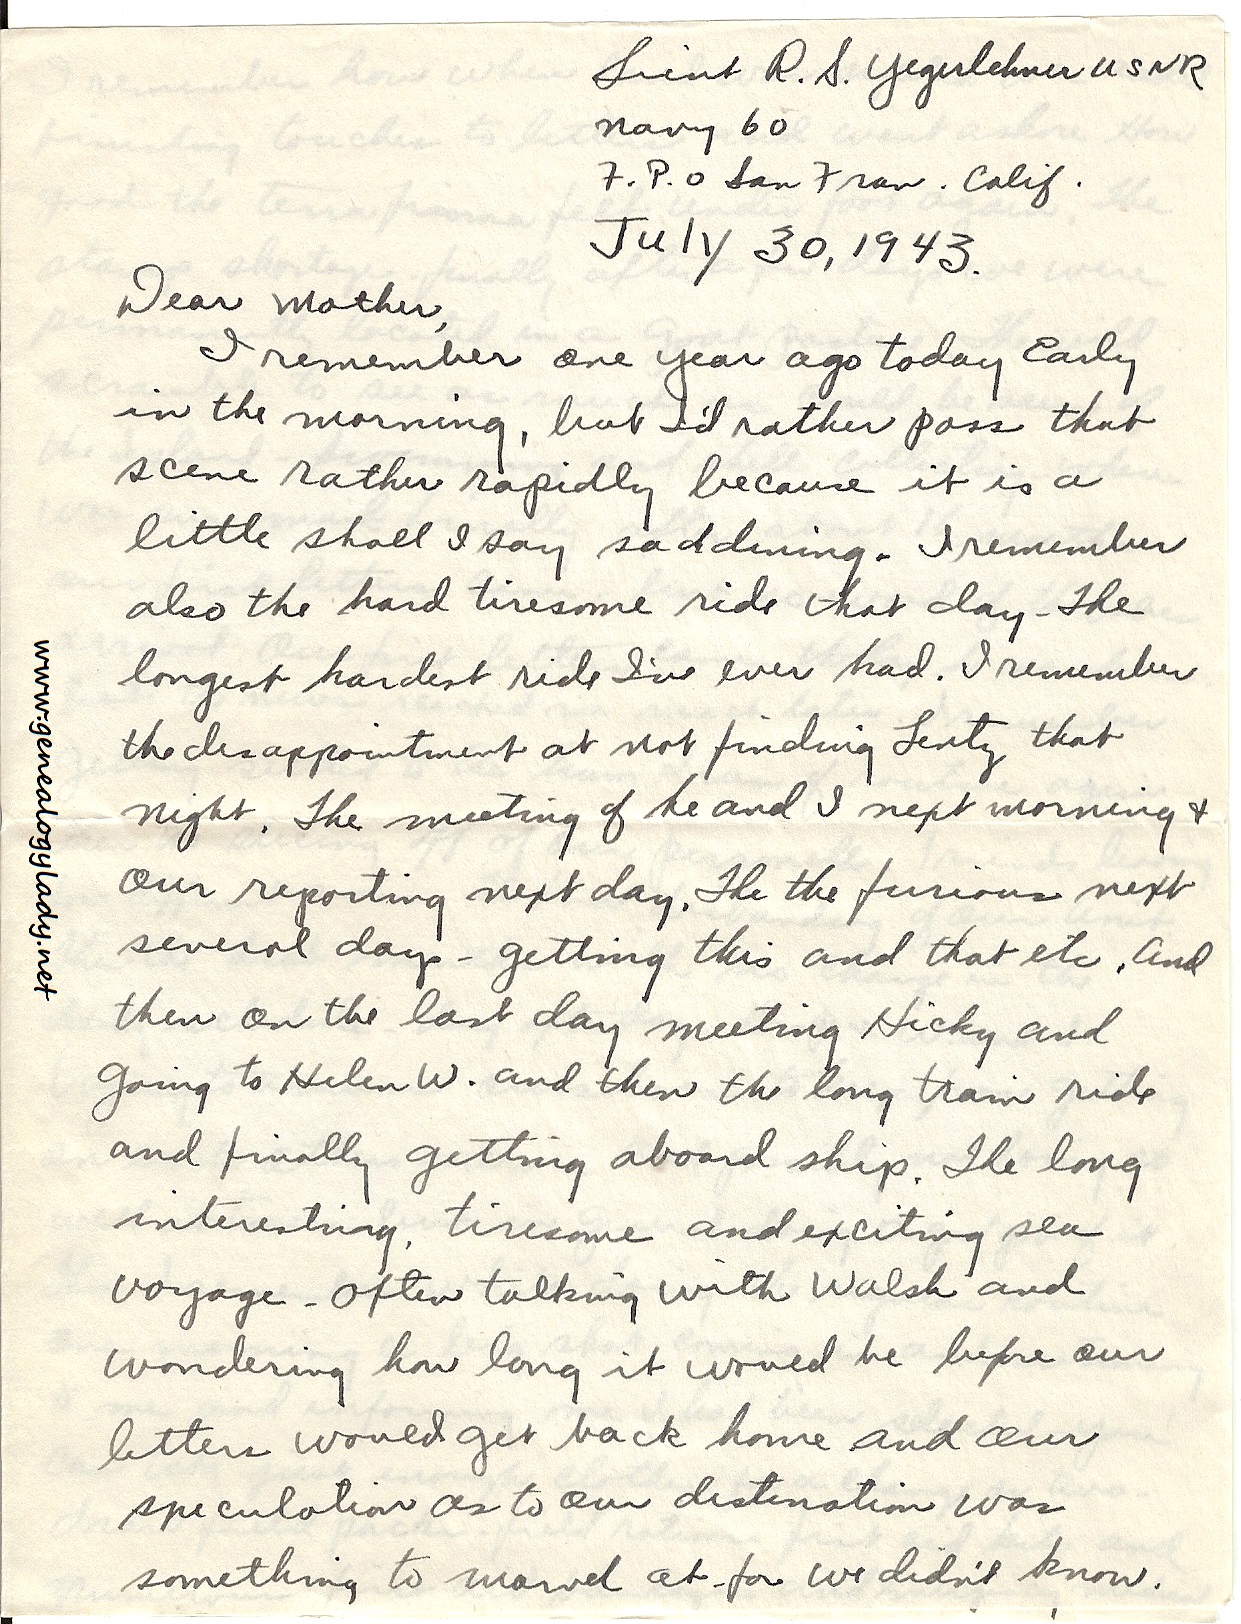 Lieut R. S. Yegerlehner USNR
Navy 60
F.P.O San Fran. Calif.
July 30, 1943.
Dear Mother,
I remember one year ago today Early
in the morning, but I'd rather pass that
scene rather rapidly because it is a
little shall I say saddining. I remember
also the hard tiresome ride that day - The
longest hardest ride I've ever had. I remember
the disappointment at not finding Lenty that
night. The meeting of he and I next morning &
our reporting next day. The the furious next
several days - getting this and that etc. And
then on the last day meeting Hicky and
going to Helen W. and then the long train ride
and finally getting aboard ship. The long
interesting, tiresome and exciting sea
voyage - often talking with Walsh and
wondering how long it would be before our
letters would get back home and our
speculation as to our destination was
something to marvel at - for we didn't know.
www.genealogylady.net